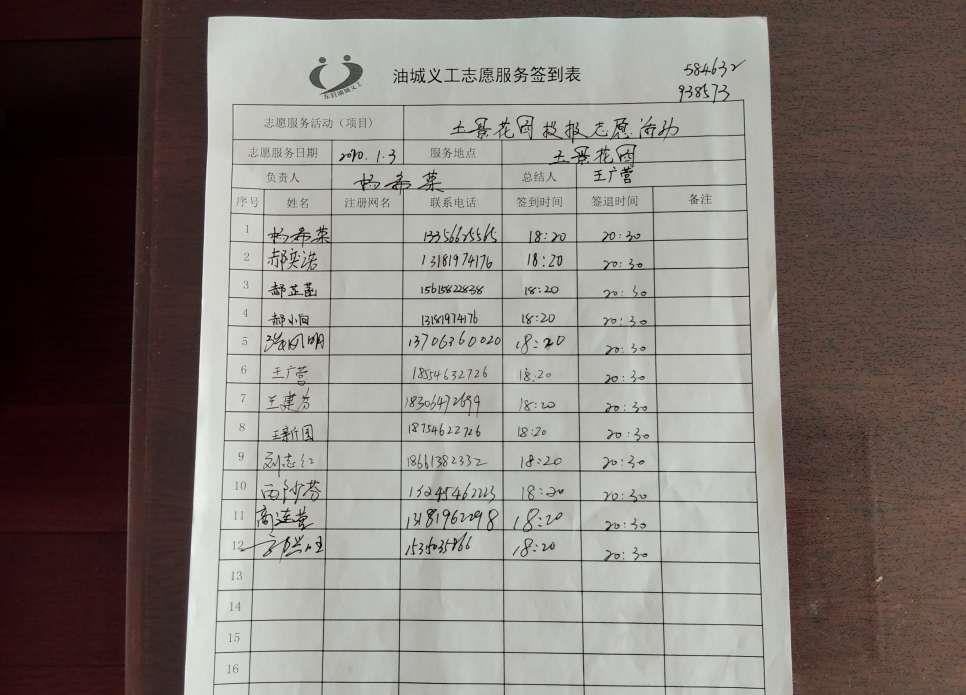 油城义工志愿服务签到表
584632
938573
志愿服务活动（项目） 土景花园投报志愿活动
志愿服务日期 2020.1.3 服务地点 土景花园
负责人 杨希菜 总结人 王广营
序号 姓名 注册网名 联系电话 签到时间 签退时间 备注
1 杨希菜 13356625565 18:20 20:30
2 郝奕诺 13181974176 18:20 20:30
3 郝芷菡 15615822838 18:20 20:30
4 郝小白 13181974176 18:20 20:30
5 凤明 13706360020 18:20 20:30
6 王广营 18554632726 18:20 20:30
7 王建芳 18306472699 18:20 20:30
8 王新国 18754622726 18:20 20:30
9 刘志红 18661382332 18:20 20:30
10 13245462223 18:20 20:30
11 高连营 13181962298 18:20 20:30
12 18:20 20:30
13
14
15
16